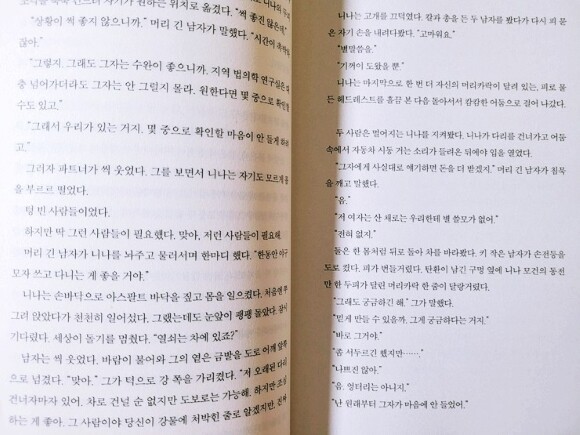 원하는 위치로 옮겼다. "썩 좋진 않은데."
"상황이 썩 좋지 않으니까." 머리 긴 남자가 말했다. "시간이
잖아."
"그렇지. 그래도 그자는 수완이 좋으니까. 지역 법의학 연구실은
충 넘어가더라도 그자는 안 그럴지 몰라. 원한다면 몇 중으로 확인할
수도 있고."
"그래서 우리가 있는 거지. 몇 중으로 확인할 마음이 안 들게 하려
고."
그러자 파트너가 씩 웃었다. 그를 보면서 니나는 자기도 모르게 몸
을 부르르 떨었다.
텅 빈 사람들이었다.
하지만 딱 그런 사람들이 필요했다. 맞아, 저런 사람들이 필요해.
머리 긴 남자가 니나를 놔주고 물러서며 한마디 했다. "한동안 야구
모자 쓰고 다니는 게 좋을 거야."
니나는 손바닥으로 아스팔트 바닥을 짚고 몸을 일으켰다. 처음엔 쭈
그려 앉았다가 천천히 일어섰다. 그랬는데도 눈앞이 핑핑 돌았다. 잠시
기다렸다. 세상이 돌기를 멈췄다. "열쇠는 차에 있죠?"
남자는 씩 웃었다. 바람이 불어와 그의 옅은 금발을 도로 이마 앞쪽
으로 넘겼다. "맞아." 그가 턱으로 강 쪽을 가리켰다. "저 오래된 다리
건너자마자 있어. 차로 건널 순 없지만 도보로는 가능해. 하지만 조심
하는 게 좋아. 그 사람이야 당신이 강물에 처박힌 줄로 알겠지만, 진짜
니나는 고개를 끄덕였다. 칼과 총을 든 두 남자를 봤다가 다시 피 묻
은 자기 손을 내려다봤다. "고마워요."
"별말씀을."
"기꺼이 도왔을 뿐."
니나는 마지막으로 한 번 더 자신의 머리카락이 달려 있는, 피로 물
든 헤드레스트를 흘끔 본 다음 돌아서서 캄캄한 어둠으로 걸어 나갔다.
두 사람은 멀어지는 니나를 지켜봤다. 니나가 다리를 건너가고 어둠
속에서 자동차 시동 거는 소리가 들려온 뒤에야 입을 열었다.
"그자에게 사실대로 얘기하면 돈을 더 받겠지." 머리 긴 남자가 침묵
을 깨고 말했다.
"음."
"저 여자는 산 채로는 우리한테 별 쓸모가 없어."
"전혀 없지."
둘은 한 몸처럼 뒤로 돌아 차를 바라봤다. 키 작은 남자가 손전등을
도로 켰다. 피가 번들거렸다. 탄환이 남긴 구멍 옆에 니나 모건의 동전
만 한 두피가 달린 머리카락 한 줌이 달랑거렸다.
"그래도 궁금하긴 해." 그가 말했다.
"믿게 만들 수 있을까, 그게 궁금하다는 거지."
"바로 그거야."
"좀 서두르긴 했지만……."
"나쁘진 않아."
"음, 엉터리는 아니지."
"난 원래부터 그자가 마음에 안 들었어."